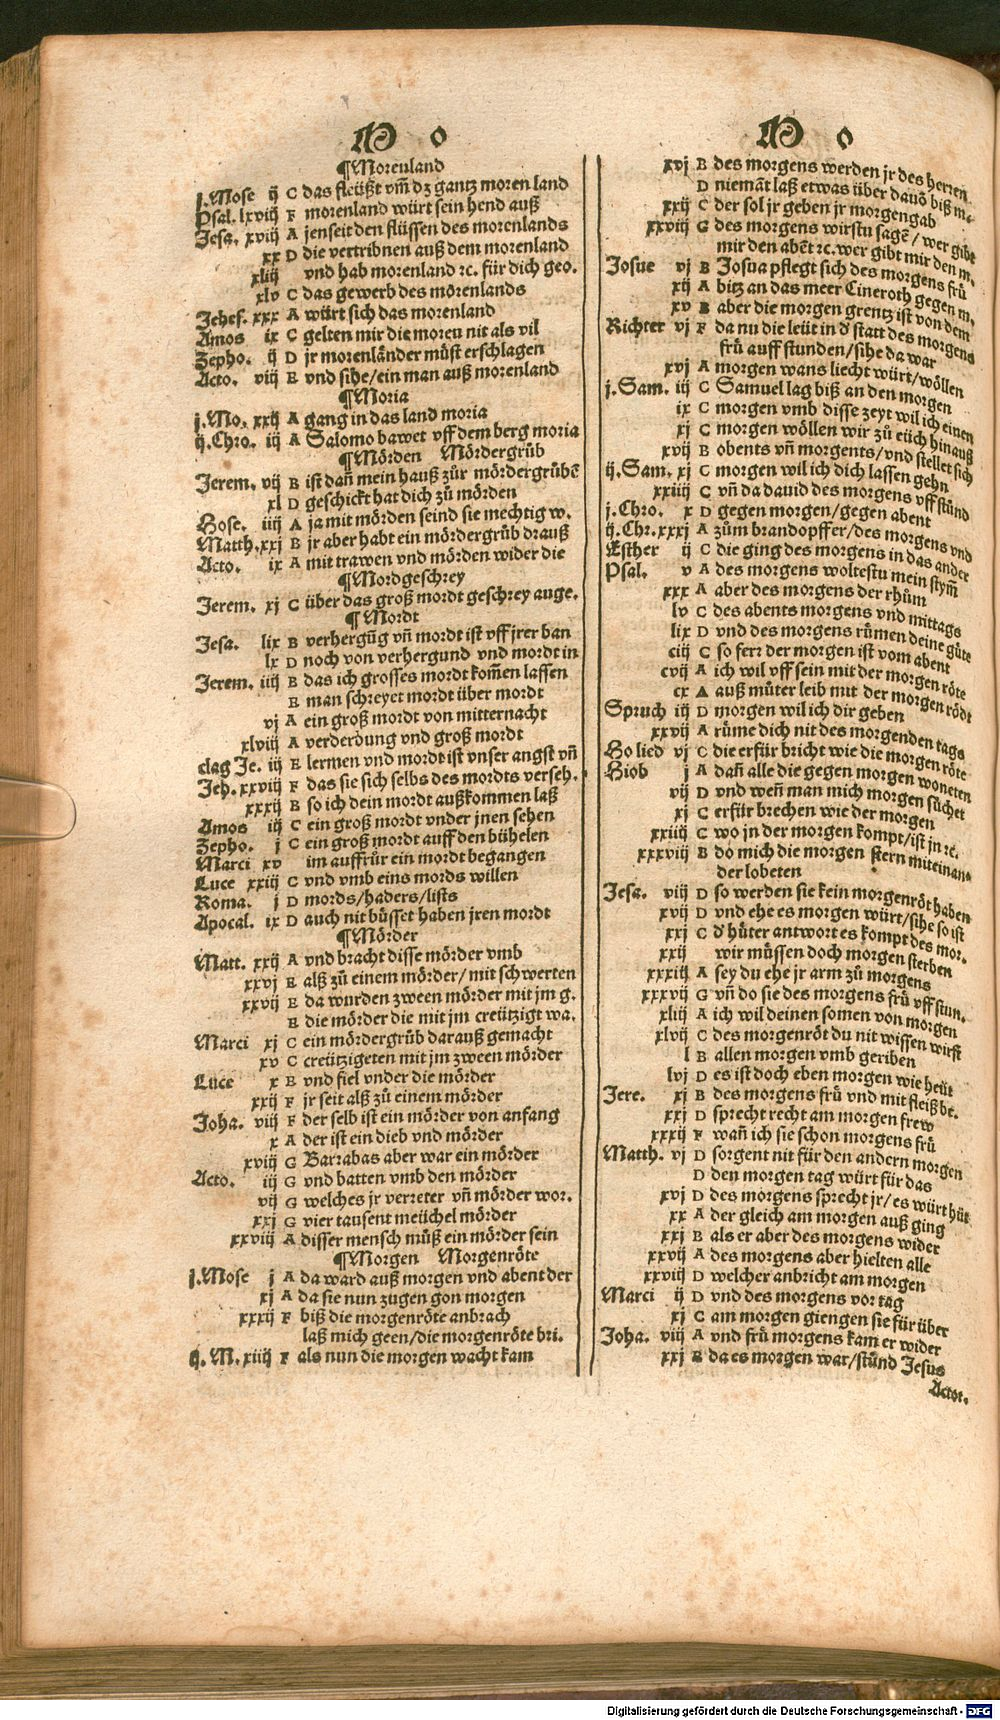 M o
¶Morenland
j.Mose ij C das fleüßt vm̄ dz gantz moren land
Psal. lxviij F morenland würt sein hend auß
Jesa. xviij A jenseit den flüssen des morenlands
xx D die vertribnen auß dem morenland
xliij vnd hab morenland ꝛc. für dich geo.
xlv C das gewerb des morenlands
Jehes. xxx A würt sich das morenland
Amos ix C gelten mir die moren nit als vil
Zepho. ij D jr morenländer müst erschlagen
Acto. viij E vnd sihe/ein man auß morenland
¶Moria
j.Mo. xxij A gang in das land moria
ij.Chro. iij A Salomo bawet vff dem berg moria
¶Mörden Mördergrüb
Jerem. vij B ist dañ mein hauß zůr mördergrübē
xl D geschickt hat dich zů mörden
Hose. iiij A ja mit mörden seind sie mechtig w.
Matth. xxj B jr aber habt ein mördergrüb drauß
Acto. ix A mit trawen vnd mörden wider die
¶Mordgeschrey
Jerem. xj C über das groß mordt geschrey auge.
¶Mordt
Jesa. lix B verhergūg vñ mordt ist vff jrer ban
lx D noch von verhergund vnd mordt in
Jerem. iiij B das ich grosses mordt kom̄en lassen
E man schreyet mordt über mordt
vj A ein groß mordt von mitternacht
xlviij A verderbung vnd groß mordt
clag Je. iij E lermen vnd mordt ist vnser angst vñ
Jeh. xxviij F das sie sich selbs des mordts verseh.
xxxij B so ich dein mordt außkommen laß
Amos iij C ein groß mordt vnder jnen sehen
Zepho. j C ein groß mordt auff den bühelen
Marci xv im auffrůr ein mordt begangen
Luce xxiij C vnd vmb eins mords willen
Roma. j D mords/haders/lists
Apocal. ix D auch nit büsset haben jren mordt
¶Mörder
Matt. xxij A vnd bracht disse mörder vmb
xxvj E alß zů einem mörder/mit schwerten
xxvij E da wurden zween mörder mit jm g.
E die mörder die mit jm creützigt wa.
Marci xj C ein mördergrüb darauß gemacht
xv C creützigeten mit jm zween mörder
Luce x E vnd fiel vnder die mörder
xxij F jr seit alß zů einem mörder
Joha. viij F der selb ist ein mörder von anfang
x A der ist ein dieb vnd mörder
xviij G Barrabas aber war ein mörder
Acto. iij G vnd batten vmb den mörder
vij G welches jr verreter vñ mörder wor.
xxj G vier tausent meüchel mörder
xxviij A disser mensch můß ein mörder sein
¶Morgen Morgenröte
j.Mose j A da ward auß morgen vnd abent der
xj A da sie nun zugen gon morgen
xxxij F biß die morgenröte anbrach
laß mich geen/die morgenröte bri.
ij.M. xiiij F als nun die morgen wacht kam
M o
xvj B des morgens werden jr des herren
D niemāt laß etwas über dauō biß m.
xxij C der sol jr geben jr morgengab
xxviij G des morgens wirstu sagē/wer gibt
mir den abēt ꝛc.wer gibt mir den m.
Josue vj B Josua pflegt sich des morgens frü
xij A bitz an das meer Cineroth gegen m.
xv B aber die morgen grentz ist von dem
Richter vj F da nu die leüt in d' statt des morgens
frü auff stunden/sihe da war
xvj A morgen wans liecht würt/wöllen
j.Sam. iij C Samuel lag biß an den morgen
ix C morgen vmb disse zeyt wil ich einen
xj C morgen wöllen wir zů eüch hinauß
xvij B obents vñ morgents/vnd stellet sich
ij.Sam. xj C morgen wil ich dich lassen gehn
xxiiij C vñ da dauid des morgens vff stůnd
j.Chro. x D gegen morgen/gegen abent
ij.Chr. xxxj A zům brandopffer/des morgens vnd
Esther ij C die ging des morgens in das ander
Psal. v A des morgens woltestu mein stym̄
xxx A aber des morgens der rhům
lv C des abents morgens vnd mittags
lix D vnd des morgens rümen deine güte
ciij C so ferr der morgen ist vom abent
cvij A ich wil vff sein mit der morgen röte
cx A auß můter leib mit der morgen rödt
Spruch iij D morgen wil ich dir geben
xxvij A rüme dich nit des morgenden tags
Ho lied vj C die erfür bricht wie die morgen röte
Hiob j A dañ alle die gegen morgen woneten
vij D vnd weñ man mich morgen sůchet
xj C erfür brechen wie der morgen
xxiiij C wo jn der morgen kompt/ist jn ꝛc.
xxxviij B do mich die morgen stern miteinan
der lobeten
Jesa. viij D so werden sie kein morgenröt haben
xvij D vnd ehe es morgen würt/sihe so ist
xxj C d' hüter antwort es kompt des mor.
xxij wir müssen doch morgen sterben
xxxiij A sey du ehe jr arm zů morgens
xxxvij G vñ do sie des morgens frü vff stun.
xliij A ich wil deinen somen von morgen
xlvij C des morgenröt du nit wissen wirst
l B allen morgen vmb geriben
lvj D es ist doch eben morgen wie heüt
Jere. xj B des morgens frü vnd mit fleiß be.
xxj D sprecht recht am morgen frew
xxxij F wañ ich sie schon morgens frü
Matth. vj D sorgent nit für den andern morgen
D den morgen tag würt für das
xvj D des morgens sprecht jr/es würt hüt
xx A der gleich am morgen auß ging
xxj B als er aber des morgens wider
xxvij A des morgens aber hielten alle
xxviij D welcher anbricht am morgen
Marci ij D vnd des morgens vor tag
xj C am morgen giengen sie für über
Joha. viij A vnd frü morgens kam er wider
xxj B da es morgen war/stůnd Jesus
Actor.
Digitalisierung gefördert durch die Deutsche Forschungsgemeinschaft - DFG